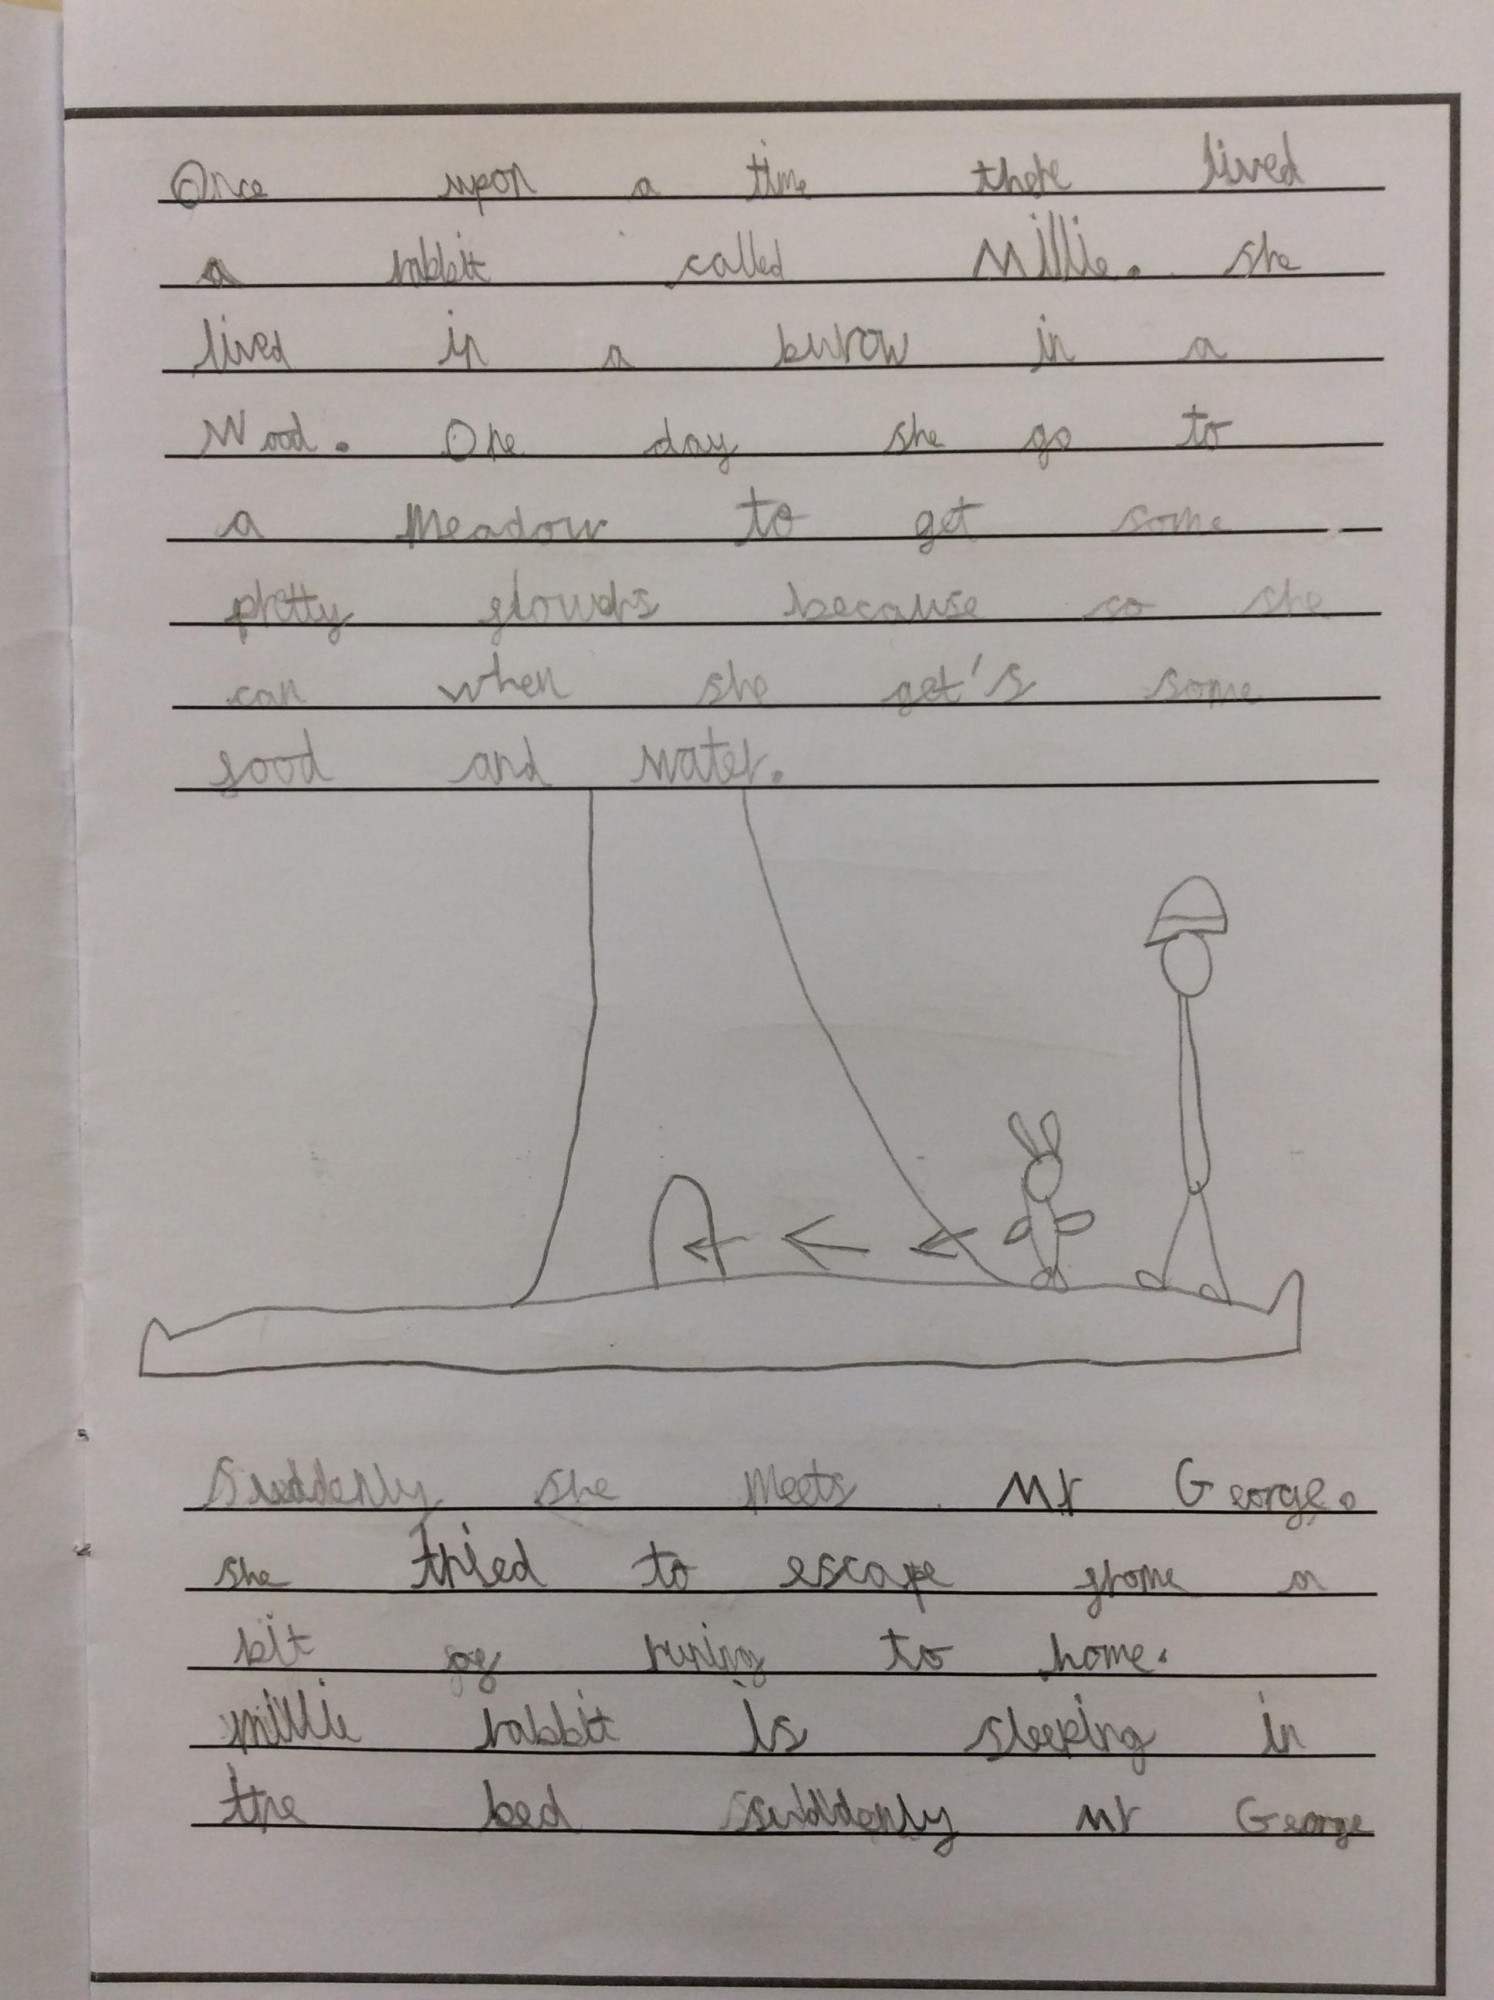 Once upon a time there lived
a rabbit called Millie. she
lived in a burow in a
Wood. One day she go to
a Meadow to get some
pretty flowers because so she
can when she get's some
food and water.
Suddenly she Meets Mr George.
she tried to escape frome a
bit of runing to home.
millie rabbit is sleeping in
the bed suddenly Mr George